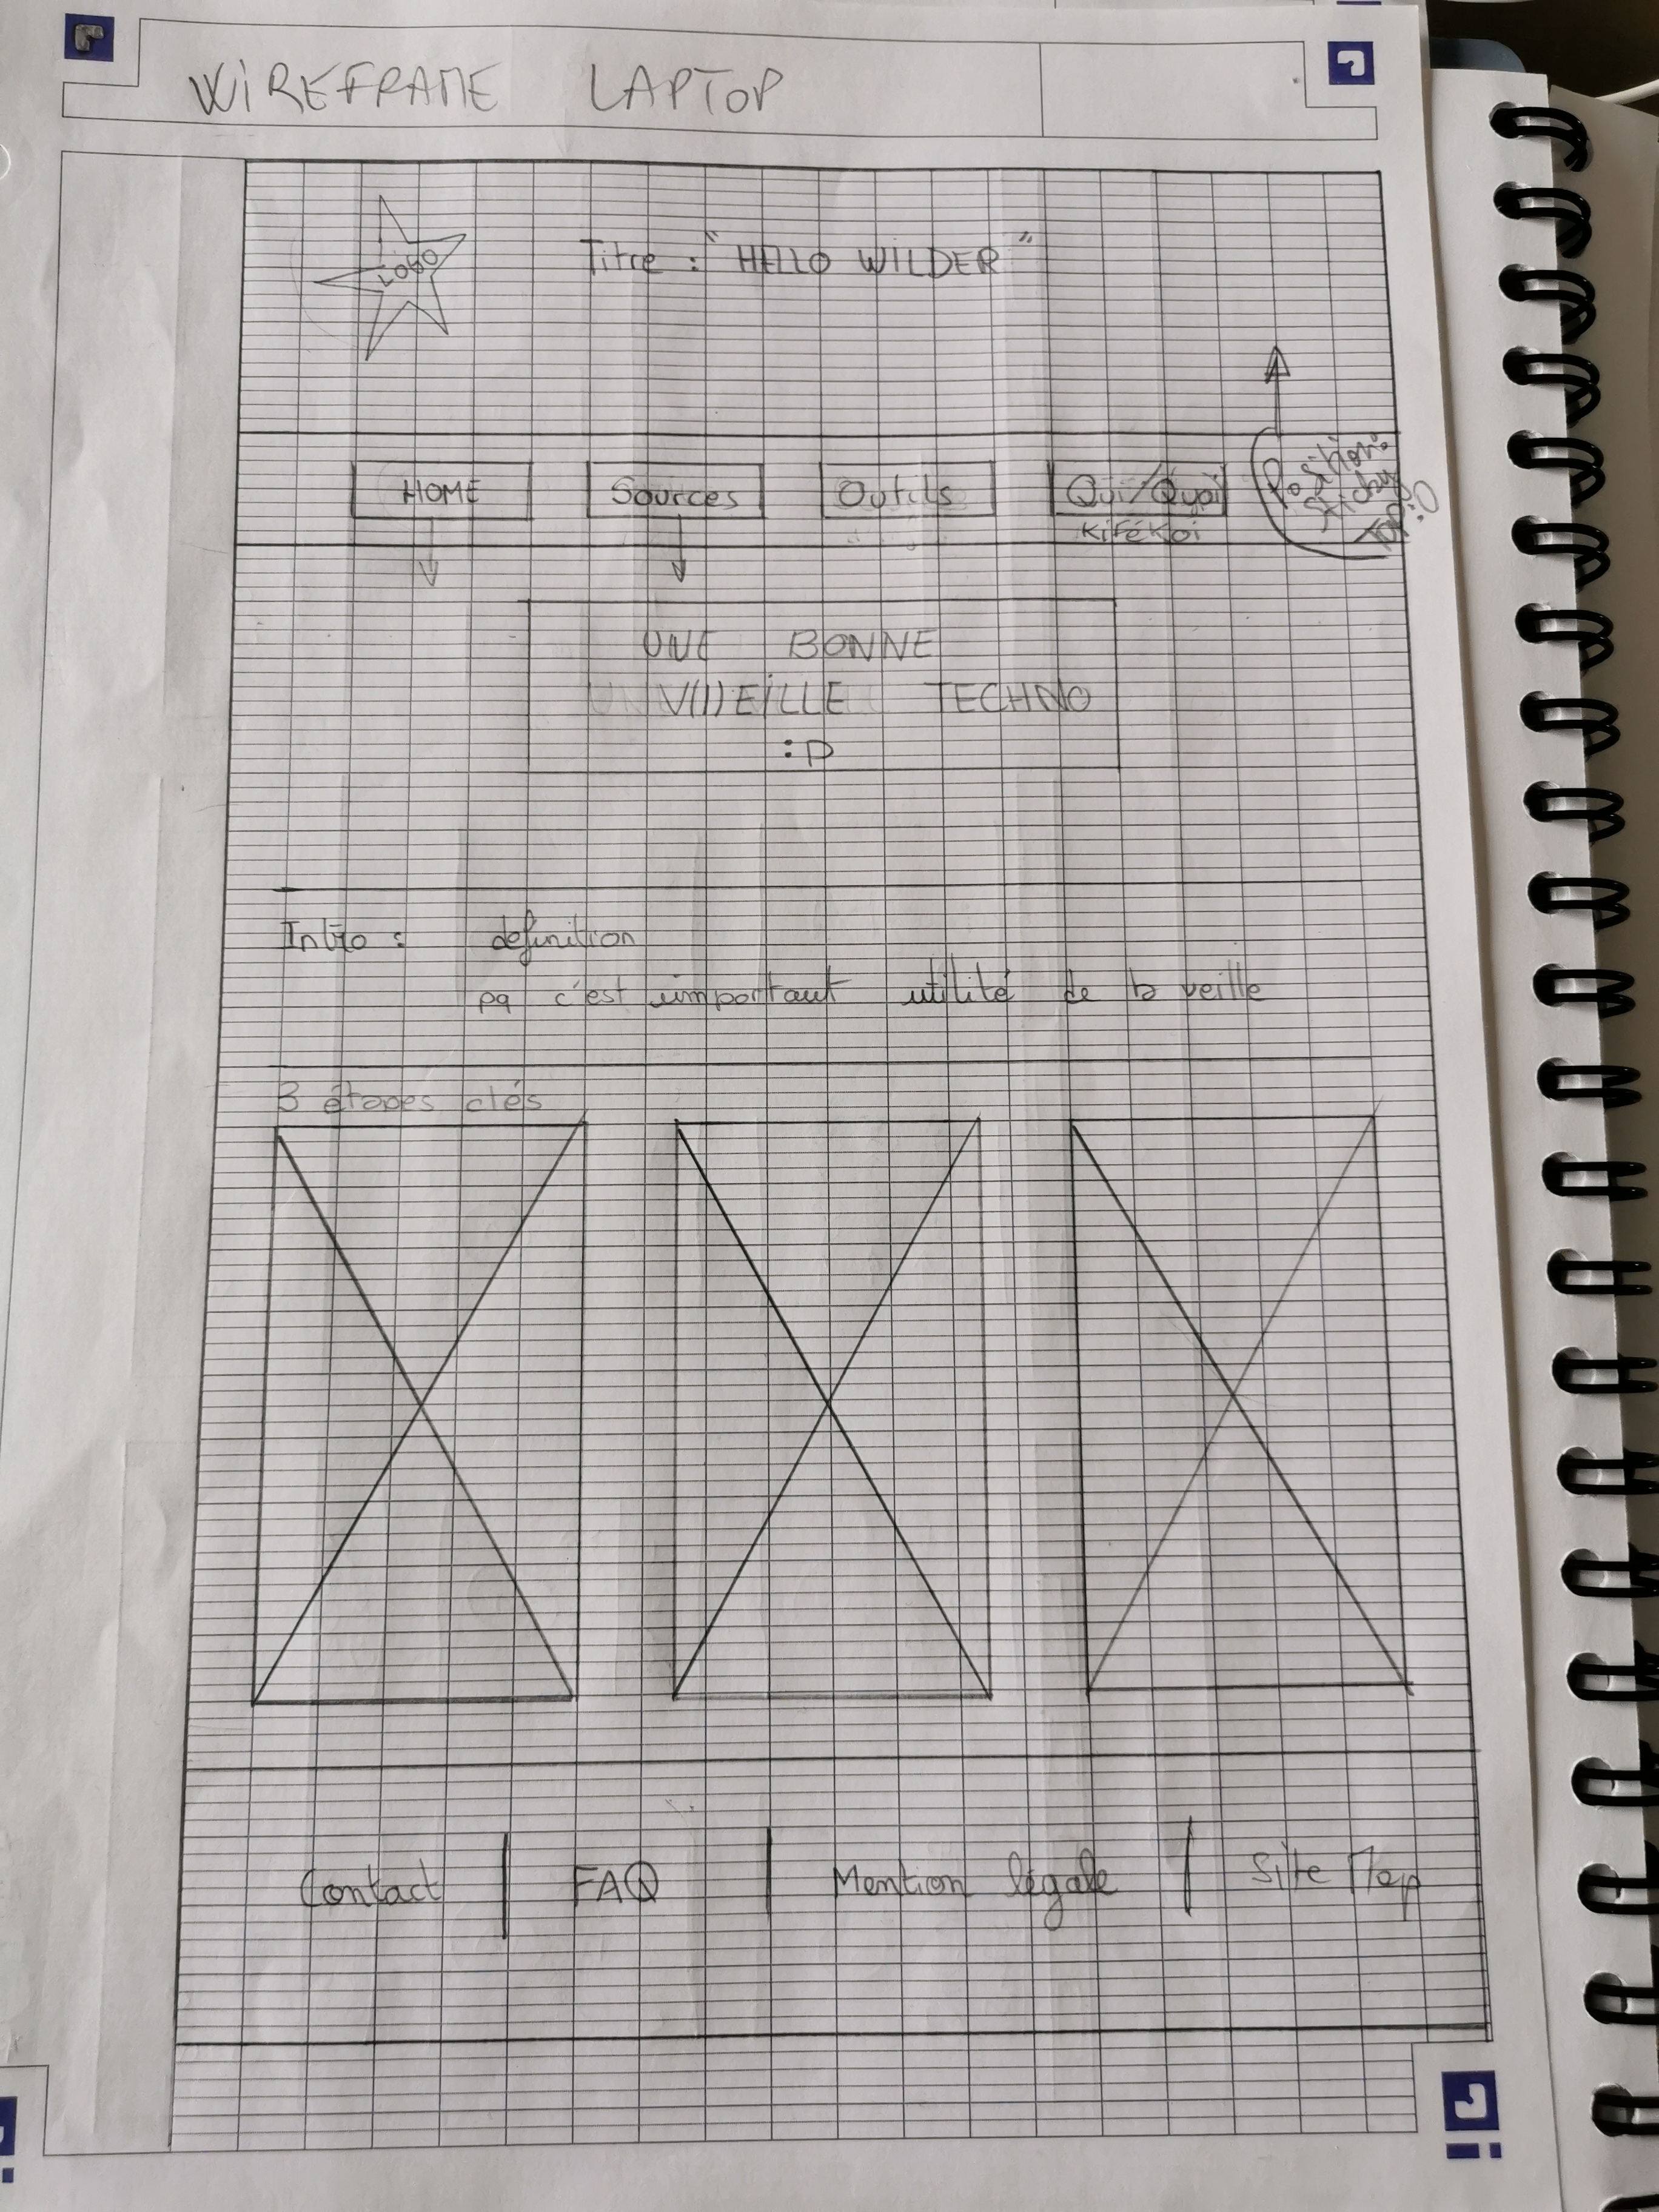 WIREFRAME LAPTOP
LOGO
Titre : "HELLO WILDER"
HOME
Sources
Outils
Qui/Quoi
KiFéKoi
Position:
Sticky
Top:0
UNE BONNE
V(I)EILLE TECHNO
:P
Intro : définition
pq c'est important utilité de la veille
3 étapes clés
Contact | FAQ | Mention légale | Site Map